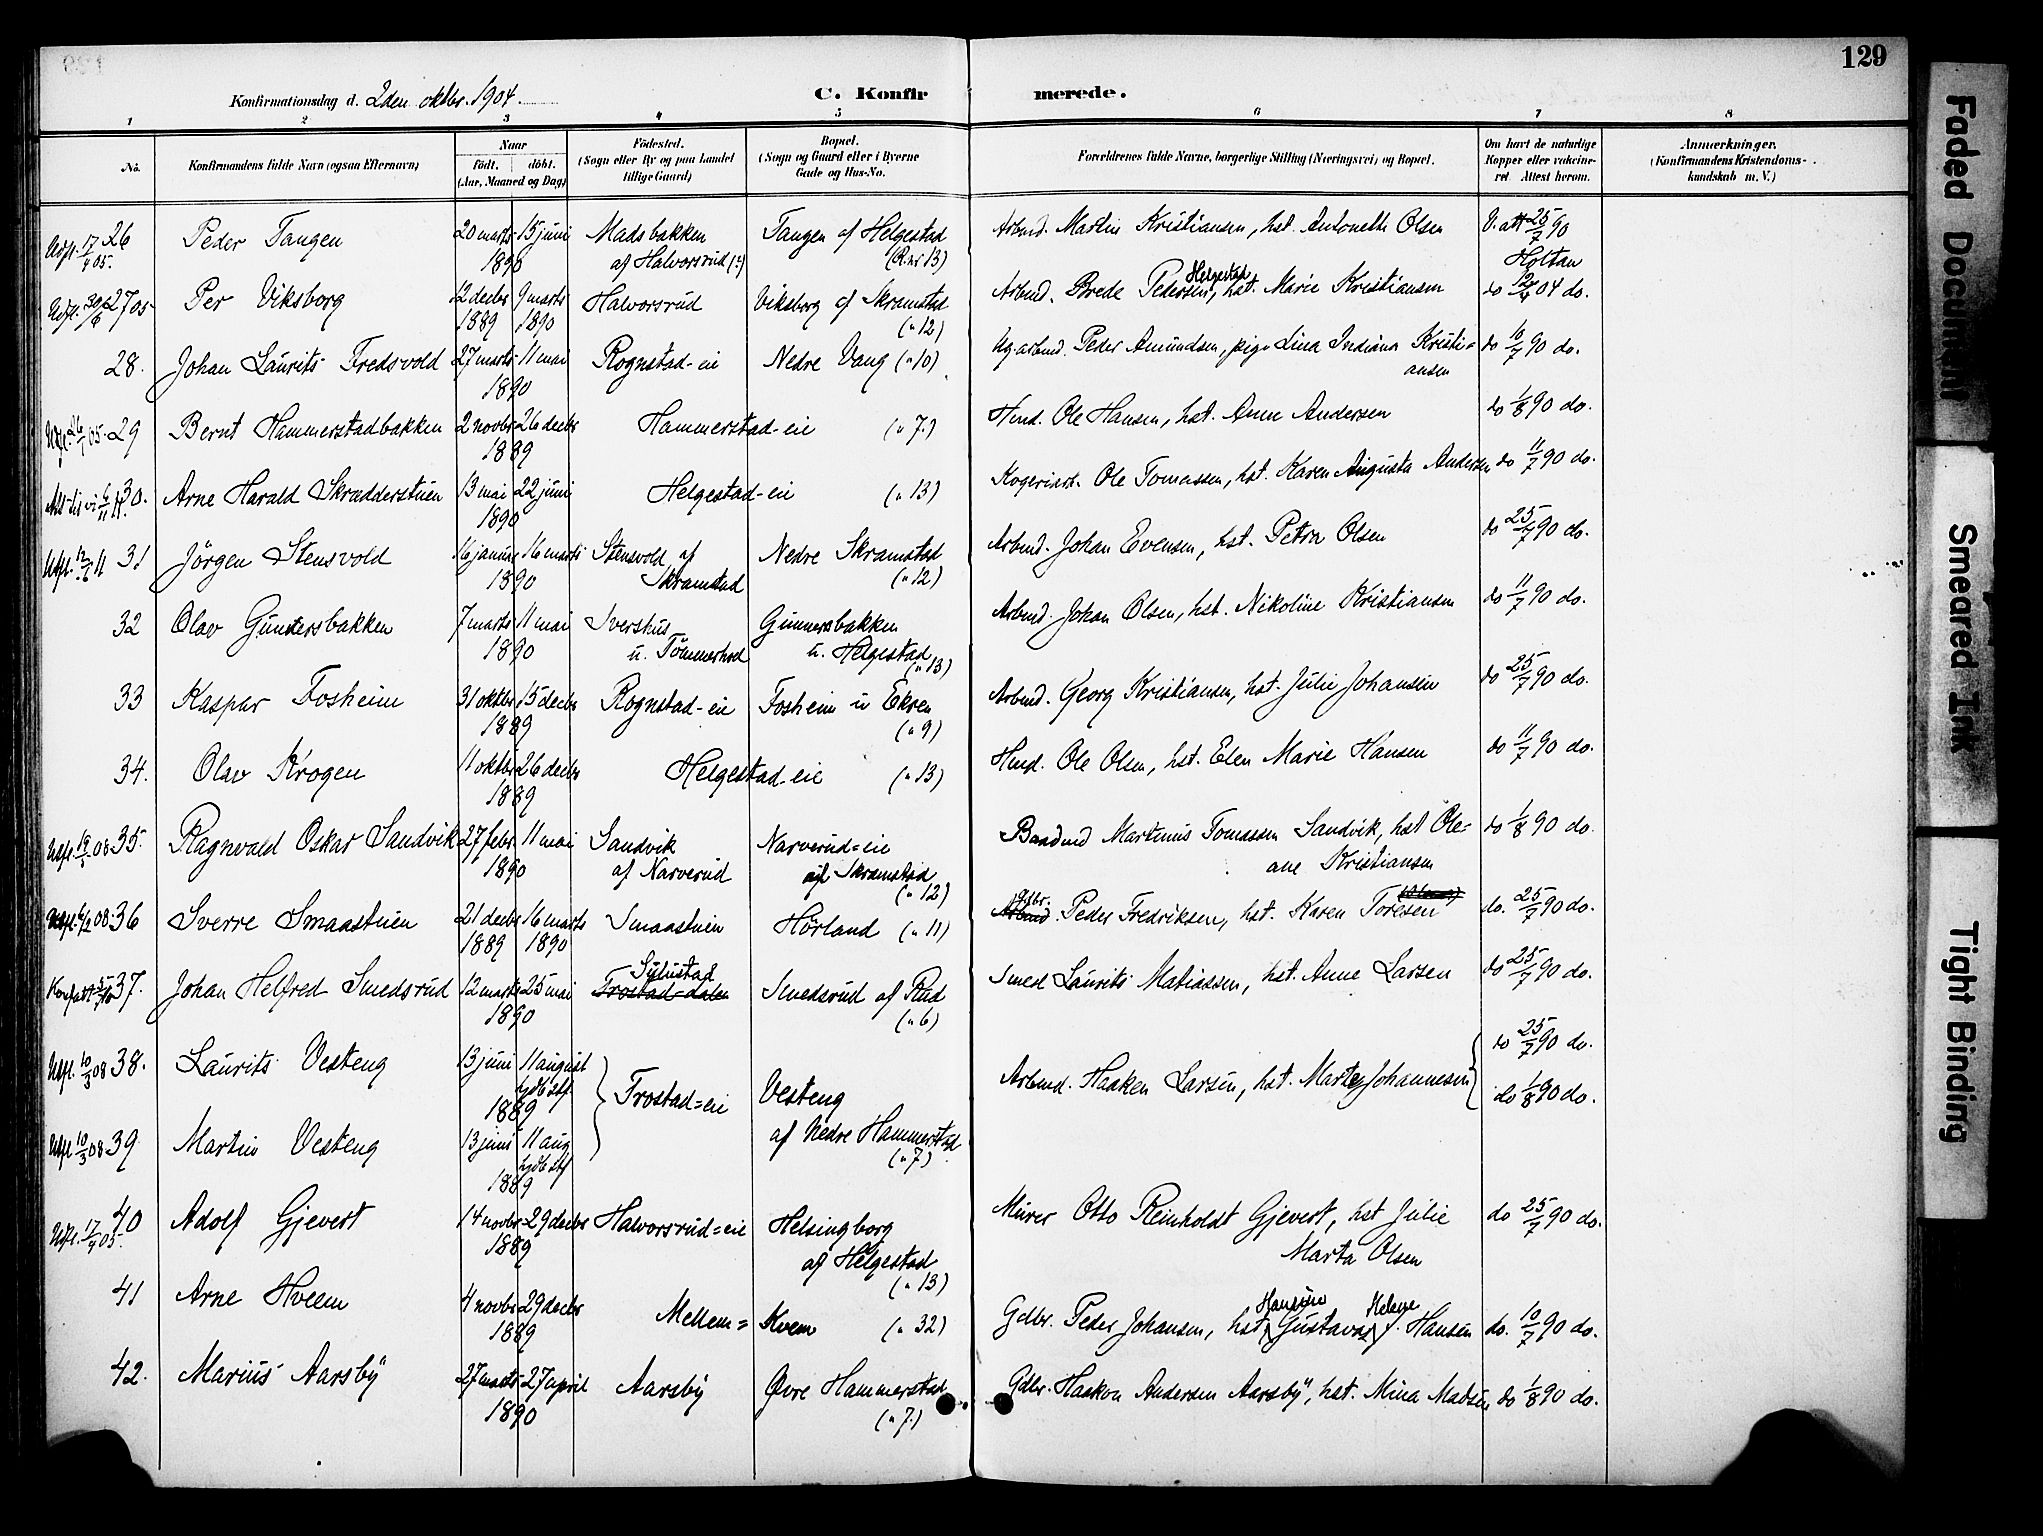 129
Konfirmationsdag d. 2den oktbr. 1904.
C. Konfir merede.
1 2 3 4 5 6 7 8
No.
Konfirmandens fulde Navn (ogsaa Efternavn)
Naar
födt. döbt.
(Aar, Maaned og Dag)
Födested.
(Sogn eller By og paa Landet
tillige Gaard)
Bopæl.
(Sogn og Gaard eller i Byerne
Gade og Hus-No.
Forældrenes fulde Navne, borgerlige Stilling (Næringsvei) og Bopæl.
Om havt de naturlige
Kopper eller vakcine-
ret Attest herom.
Anmærkninger.
(Konfirmandens Kristendoms-
kundskab m. V.)
Udfl. 17/4 05. 26 Peder Tangen 20 marts 15 juni Madsbakken Tangen af Helgestad Arbmd. Martin Kristiansen, hst. Antonette Olsen V. att 25/7 90
1890 af Halvorsrud (?) (R.nr 13) Holtan
27 Per Viksborg 12 decbr 9 marts Halvorsrud Viksborg af Skramstad Arbmd. Brede Pedersen Helgestad, hst. Marie Kristiansen do 12/4 04 do.
1889 1890 (" 12)
28. Johan Laurits Fredsvold 27 marts 11 mai Rognstad-eie Nedre Vang (" 10) Ug. arbmd. Peder Amundsen, pige Lina Indiana Kristi= do 10/7 90 do.
1890 ansen
29 Bernt Hammerstadbakken 2 novbr 26 decbr Hammerstad-eie (" 7.) Hmd. Ole Hansen, hst. Anne Andersen do 1/8 90 do.
1889
30. Arne Harald Skrædderstuen 13 mai 22 juni Helgestad-eie (" 13) Ole Tomassen, hst. Karen Augusta Andersen do 11/7 90 do.
1890
31 Jörgen Stensvold 16 januar 16 marts Stensvold af Nedre Skramstad Arbmd. Johan Evensen, hst. Petra Olsen do 25/7 90 do.
1890 Skramstad (" 12)
32 Olav Gunnersbakken 7 marts 11 mai Svershus Gunnersbakken Arbmd. Johan Olsen, hst. Nikoline Kristiansen do 11/7 90 do.
1890 u. Tömmerhol u. Helgestad (" 13)
33 Kaspar Fosheim 31 oktbr 15 decbr Rognstad-eie Fosheim u Ekren Arbmd. Georg Kristiansen, hst. Julie Johansen do 25/7 90 do.
1889 (" 9)
34. Olav Krogen 11 oktbr 26 decbr Helgestad-eie (" 13) Hmd. Ole Olsen, hst. Elen Marie Hansen do 11/7 90 do.
1889
35. Ragnvald Oskar Sandvik 27 febr 11 mai Sandvik Narverud=eie Baadmd Martinus Tomassen Sandvik, hst Ole- do 1/8 90 do.
1890 af Narverud af Skramstad (" 12) ane Kristiansen
36 Sverre Smaastuen 21 decbr 16 marts Smaastuen Hörland (" 11) Gdbr. Arbmd. Peder Fredriksen, hst. Karen Toresen do. 25/7 90 do.
1889 1890
37. Johan Helfred Smedsrud 12 marts 25 mai Sulustad Frostad-dalen Smedsrud af Rud Smed Laurits Matiassen, hst. Anne Larsen do 25/7 90 do.
1890 (" 6)
Udfl. 10/3 08 38. Laurits Vesteng 13 juni 11 august Frostad=eie Vesteng Arbmd. Haaken Larsen, hst. Marte Johannesen do 25/7 90 do.
hjdb stf do 1/8 90 do.
1889 af Nedre Hammerstad
Udfl 10/3 08 39 Martin Vesteng 13 juni 11 aug (" 7)
hjdb stf
1889
Udfl. 17/4 05. 40 Adolf Gjevert 14 novbr 29 decbr Halvorsrud=eie Helsingborg Murer Otto Reinholdt Gjevert, hst Julie do 25/7 90 do.
1889 af Helgestad (" 13) Marta Olsen
41 Arne Hveem 4 novbr 29 decbr Mellem= Kvem (" 32) Gdbr. Peder Johansen, hst. Hansine Gustava Helene Hansen do. 10/7 90 do.
1889
42. Marius Aarsby 27 marts 27 april Aarsby Övre Hammerstad Gdbr. Haakon Andersen Aarsby, hst. Mina Madsen do 1/8 90 do.
1890 (" 7.)
Faded Document
Smeared Ink
Tight Binding